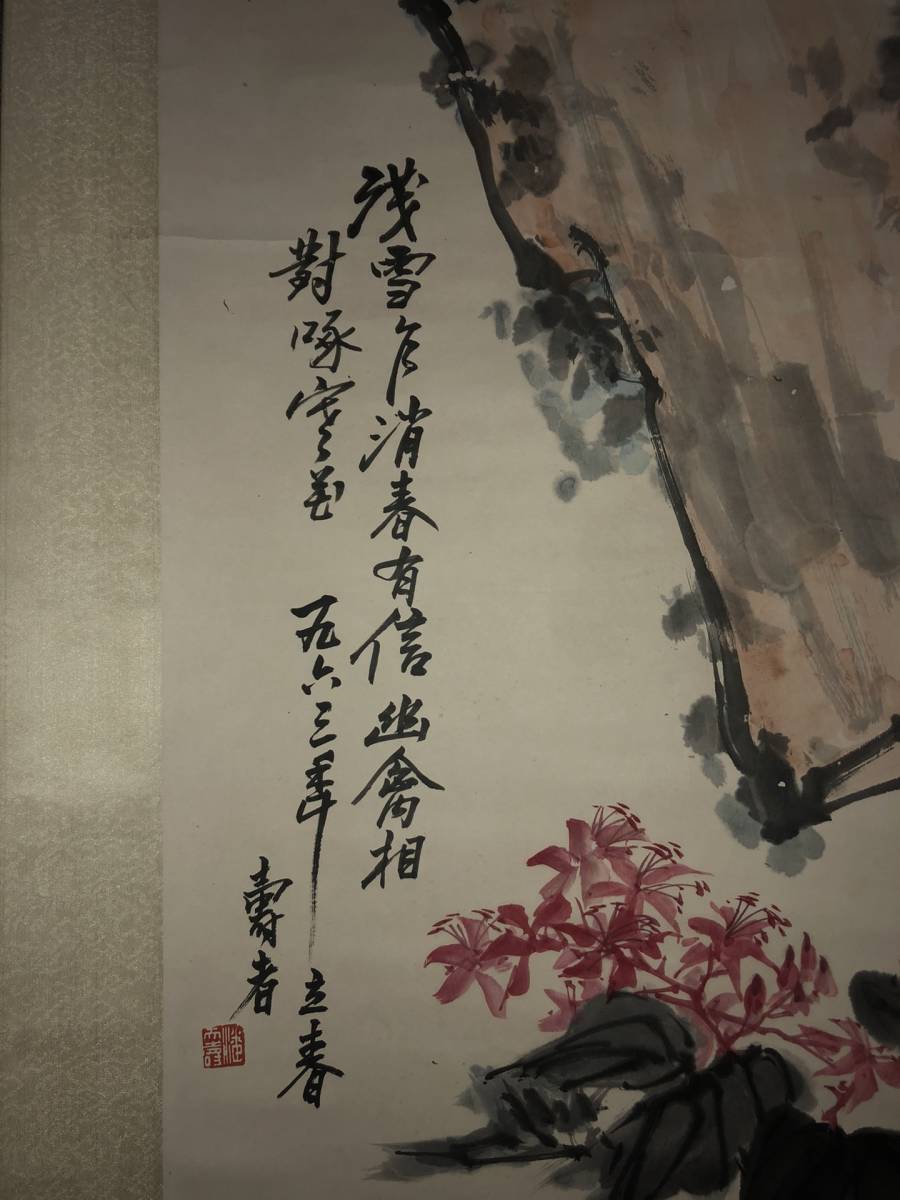 浅雪乍消春有信幽禽相
對啄寒花 一九六三年立春
壽者
潘天壽